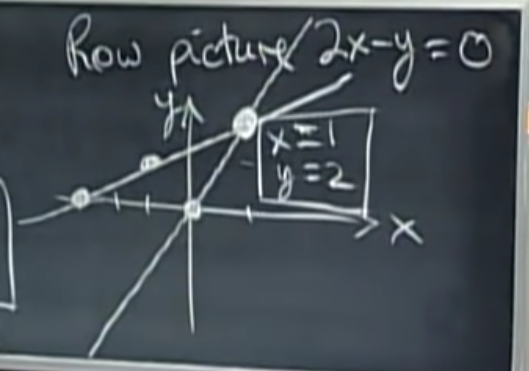 Row picture 2x-y=0
y
x=1
y=2
x